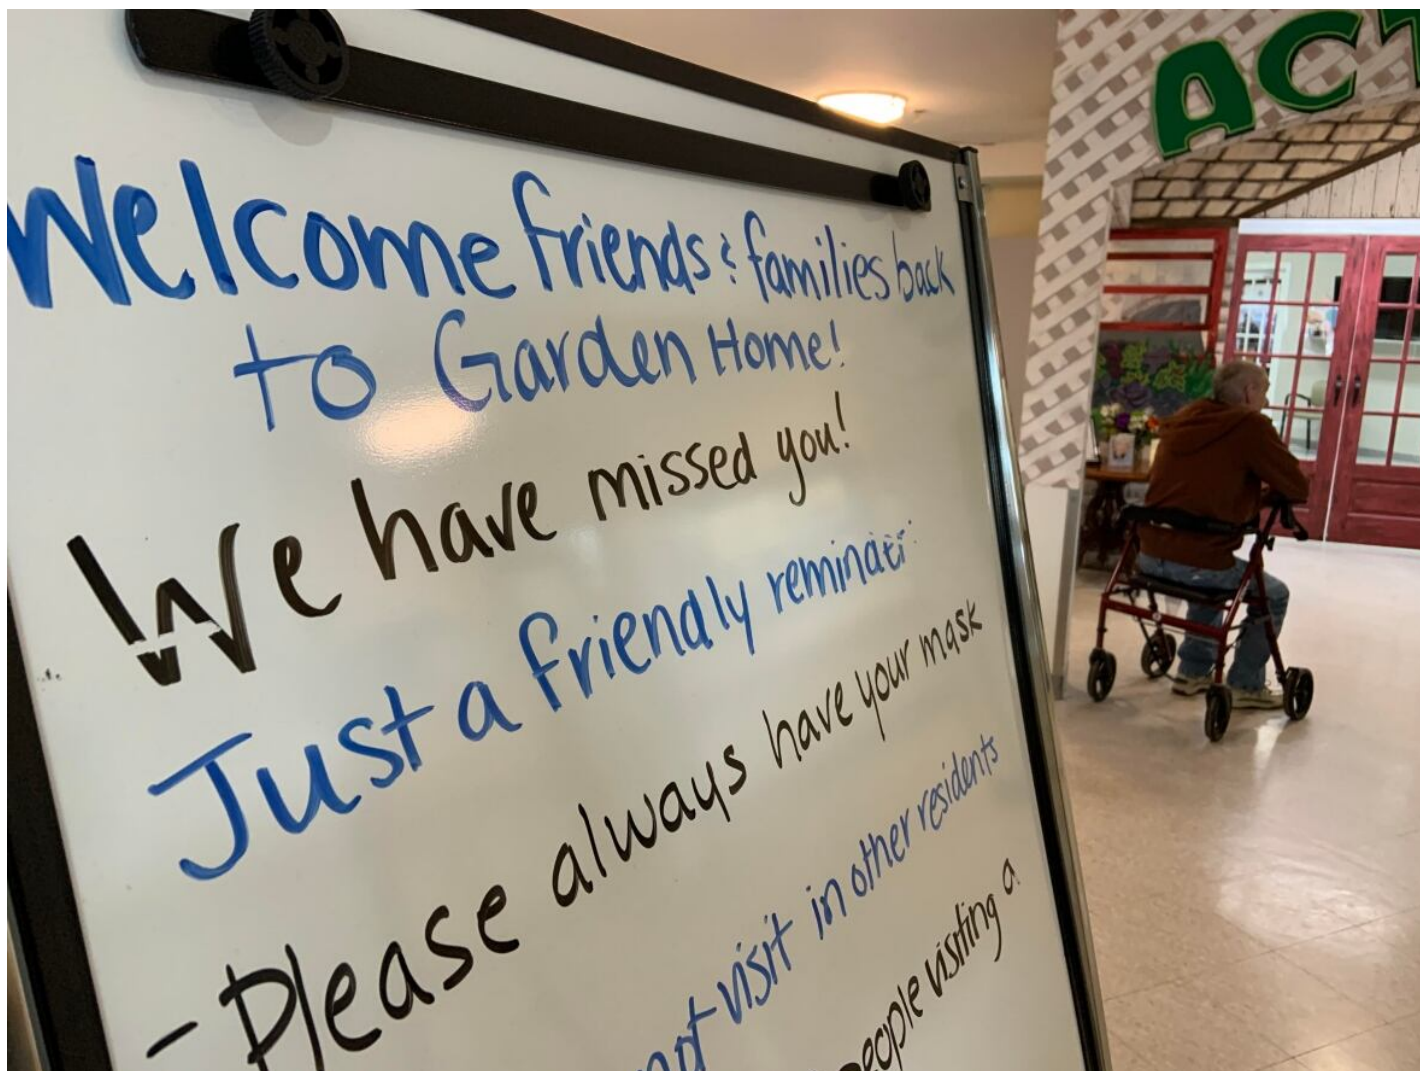 Welcome friends & families back
to Garden Home!
We have missed you!
Just a friendly reminder:
- Please always have your mask
not visit in other residents
people visiting a
ACT